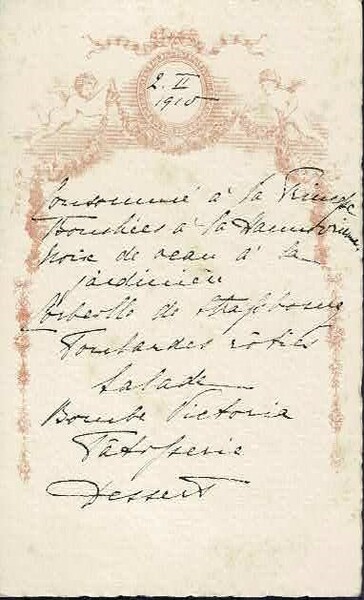 2. II
1910
Consommé à la Princesse
Bouchées à la
Noix de veau à la
jardinière
Corbeille de Strassbourg
Poulardes rôties
Salade
Bombe Victoria
Pâtisserie
Dessert